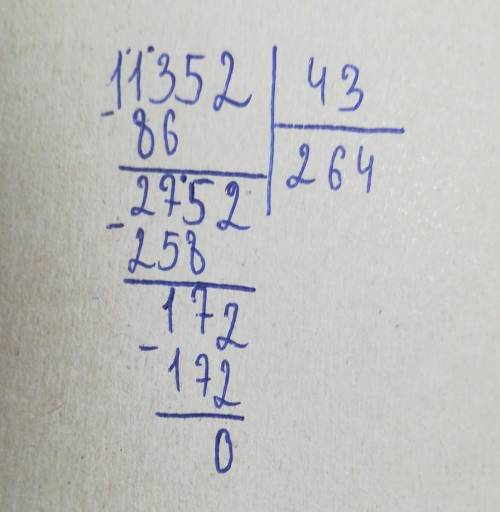 11352 | 43
- 86 | 264
2752
- 258
172
- 172
0